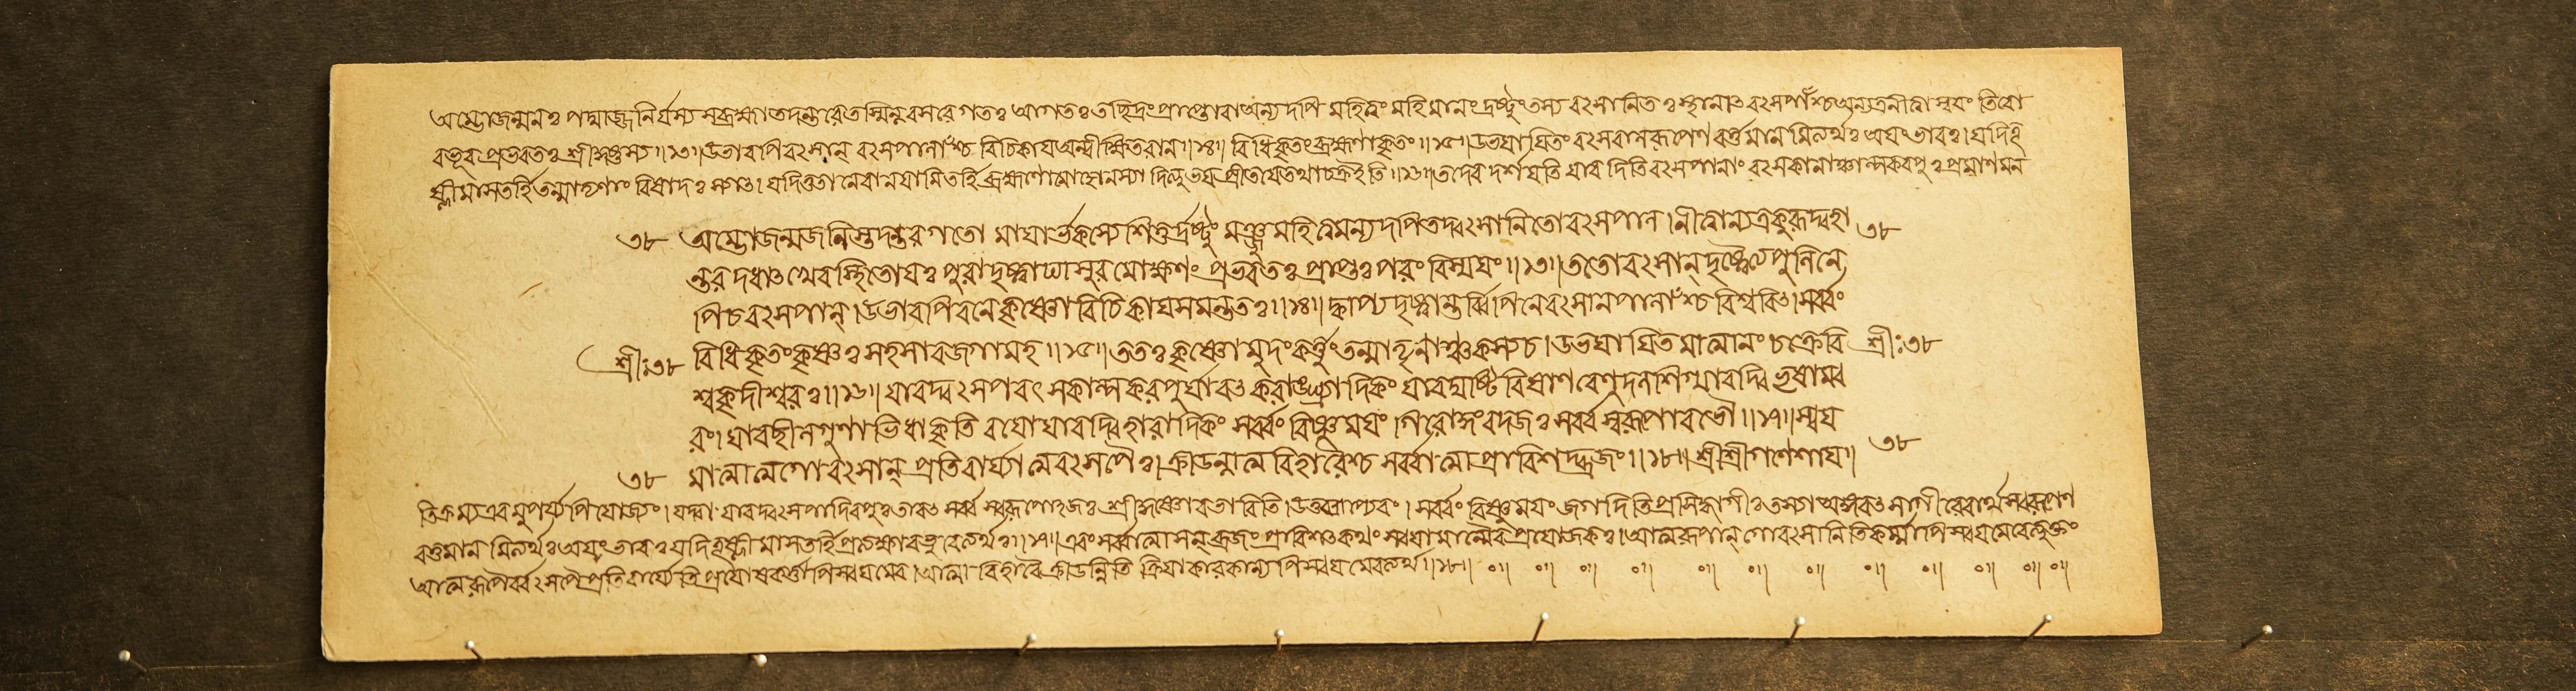 অম্ভোজন্মনঃ পদ্মাজ্জনির্যস্য স ব্রহ্মা তদন্তরে তস্মিন্নবসরে গতঃ আগতঃ তচ্ছিদ্রং প্রাপ্তো বা অন্যদপি মহিত্বং মহিমানং দ্রষ্টুং তস্য বৎসানিতঃ স্থানাৎ বৎসপাঁশ্চ অন্যত্র নীত্বা স্বয়ং তিরো
বভূব প্রভবতঃ শ্রীকৃষ্ণস্য॥১৩॥ উভাবপি বৎসান্ বৎসপালাঁশ্চ বিচিকায় অন্বীক্ষিতবান্॥১৪॥ বিধিকৃতং ব্রহ্মণা কৃতং॥১৫॥ উভয়ায়িতং বৎসবালরূপেণ বর্ত্তমানমিত্যর্থঃ অয়ং ভাবঃ। যদি তূ
ষ্ণীমাসে তর্হি তন্মাতৄণাং বিষাদঃ স্যাৎ। যদি তু তানেবানয়ামি তর্হি ব্রহ্মণো মোহো ন স্যাদিত্যুভয়প্রীতয়ে তথা চক্রে ইতি॥১৬॥ তদেব দর্শয়তি যাবদিতি বৎসপানাং বৎসকানাঞ্চাল্পকবপুঃ প্রমাণমন
৩৮ অম্ভোজন্মজনিস্তদন্তরগতো মায়ার্ভকস্যেশিতুর্দ্রষ্টুং মঞ্জুমহিত্বমন্যদপি তদ্বৎসানিতো বৎসপান্। নীত্বান্যত্র কুরূদ্বহা ৩৮
ন্তরদধাৎ খেবস্থিতো যঃ পুরা দৃষ্ট্বাঘাসুরমোক্ষণং প্রভবতঃ প্রাপ্তঃ পরং বিস্ময়ং॥১৩॥ ততো বৎসান্ দৃষ্ট্বৈত্য পুলিনে
পি চ বৎসপান্। উভাবপি বনে কৃষ্ণো বিচিকায় সমন্ততঃ॥১৪॥ ক্বাপ্যদৃষ্ট্বান্তর্ব্বিপিনে বৎসান্ পালাঁশ্চ বিশ্ববিৎ। সর্ব্বং
শ্রীঃ ৩৮ বিধিকৃতং কৃষ্ণঃ সহসাবজগাম হ॥১৫॥ ততঃ কৃষ্ণো মুদং কর্ত্তুং তন্মাতৄণাঞ্চ কস্য চ। উভয়ায়িতমাত্মানং চক্রে বি শ্রীঃ ৩৮
শ্বকৃদীশ্বরঃ॥১৬॥ যাবদ্বৎসপবৎসকাল্পকবপুর্যাবৎ করাঙ্ঘ্র্যাদিকং যাবদ্যষ্টিবিষাণবেণুদলশিগ্যাবদ্বিভূষাম্ব
রং। যাবচ্ছীলগুণাভিধাকৃতিবয়ো যাবদ্বিহারাদিকং সর্ব্বং বিষ্ণুময়ং গিরোঙ্গবদজঃ সর্ব্বস্বরূপো বভৌ॥১৭॥ স্বয়
৩৮ মাত্মাত্মগোবৎসান্ প্রতিবার্য্যাত্মবৎসপৈঃ। ক্রীডন্নাত্মবিহারৈশ্চ সর্ব্বাত্মা প্রাবিশদ্ব্রজং॥১৮॥ শ্রীশ্রীগণেশায়॥ ৩৮
তিক্রম্য এবমুপর্য্যপি যোজ্যং। যদ্বা যাবদ্বৎসপাদিবপুঃ তাবৎ সর্ব্বস্বরূপোঽজঃ শ্রীকৃষ্ণো বভাবিতি। উত্তরত্রাপ্যেবং। সর্ব্বং বিষ্ণুময়ং জগদিতি প্রসিদ্ধা গীঃ তস্যা অঙ্গবৎ সা গীরেবার্থস্বরূপেণ
বর্ত্তমানমিত্যর্থঃ অয়ং ভাবঃ যদি তূষ্ণীমাসে তর্হি
আত্মরূপৈর্ব্বৎসপৈঃ প্রতিবার্য্যেতি প্রযোজ্যকর্ত্তাপি স্বয়মেব। আত্মবিহারৈঃ ক্রীডন্নিতি ক্রিয়াকারকাণ্যপি স্বয়মেবেত্যর্থঃ॥১৮॥ ০॥ ০॥ ০॥ ০॥ ০॥ ০॥ ০॥ ০॥ ০॥ ০॥ ০॥ ০॥